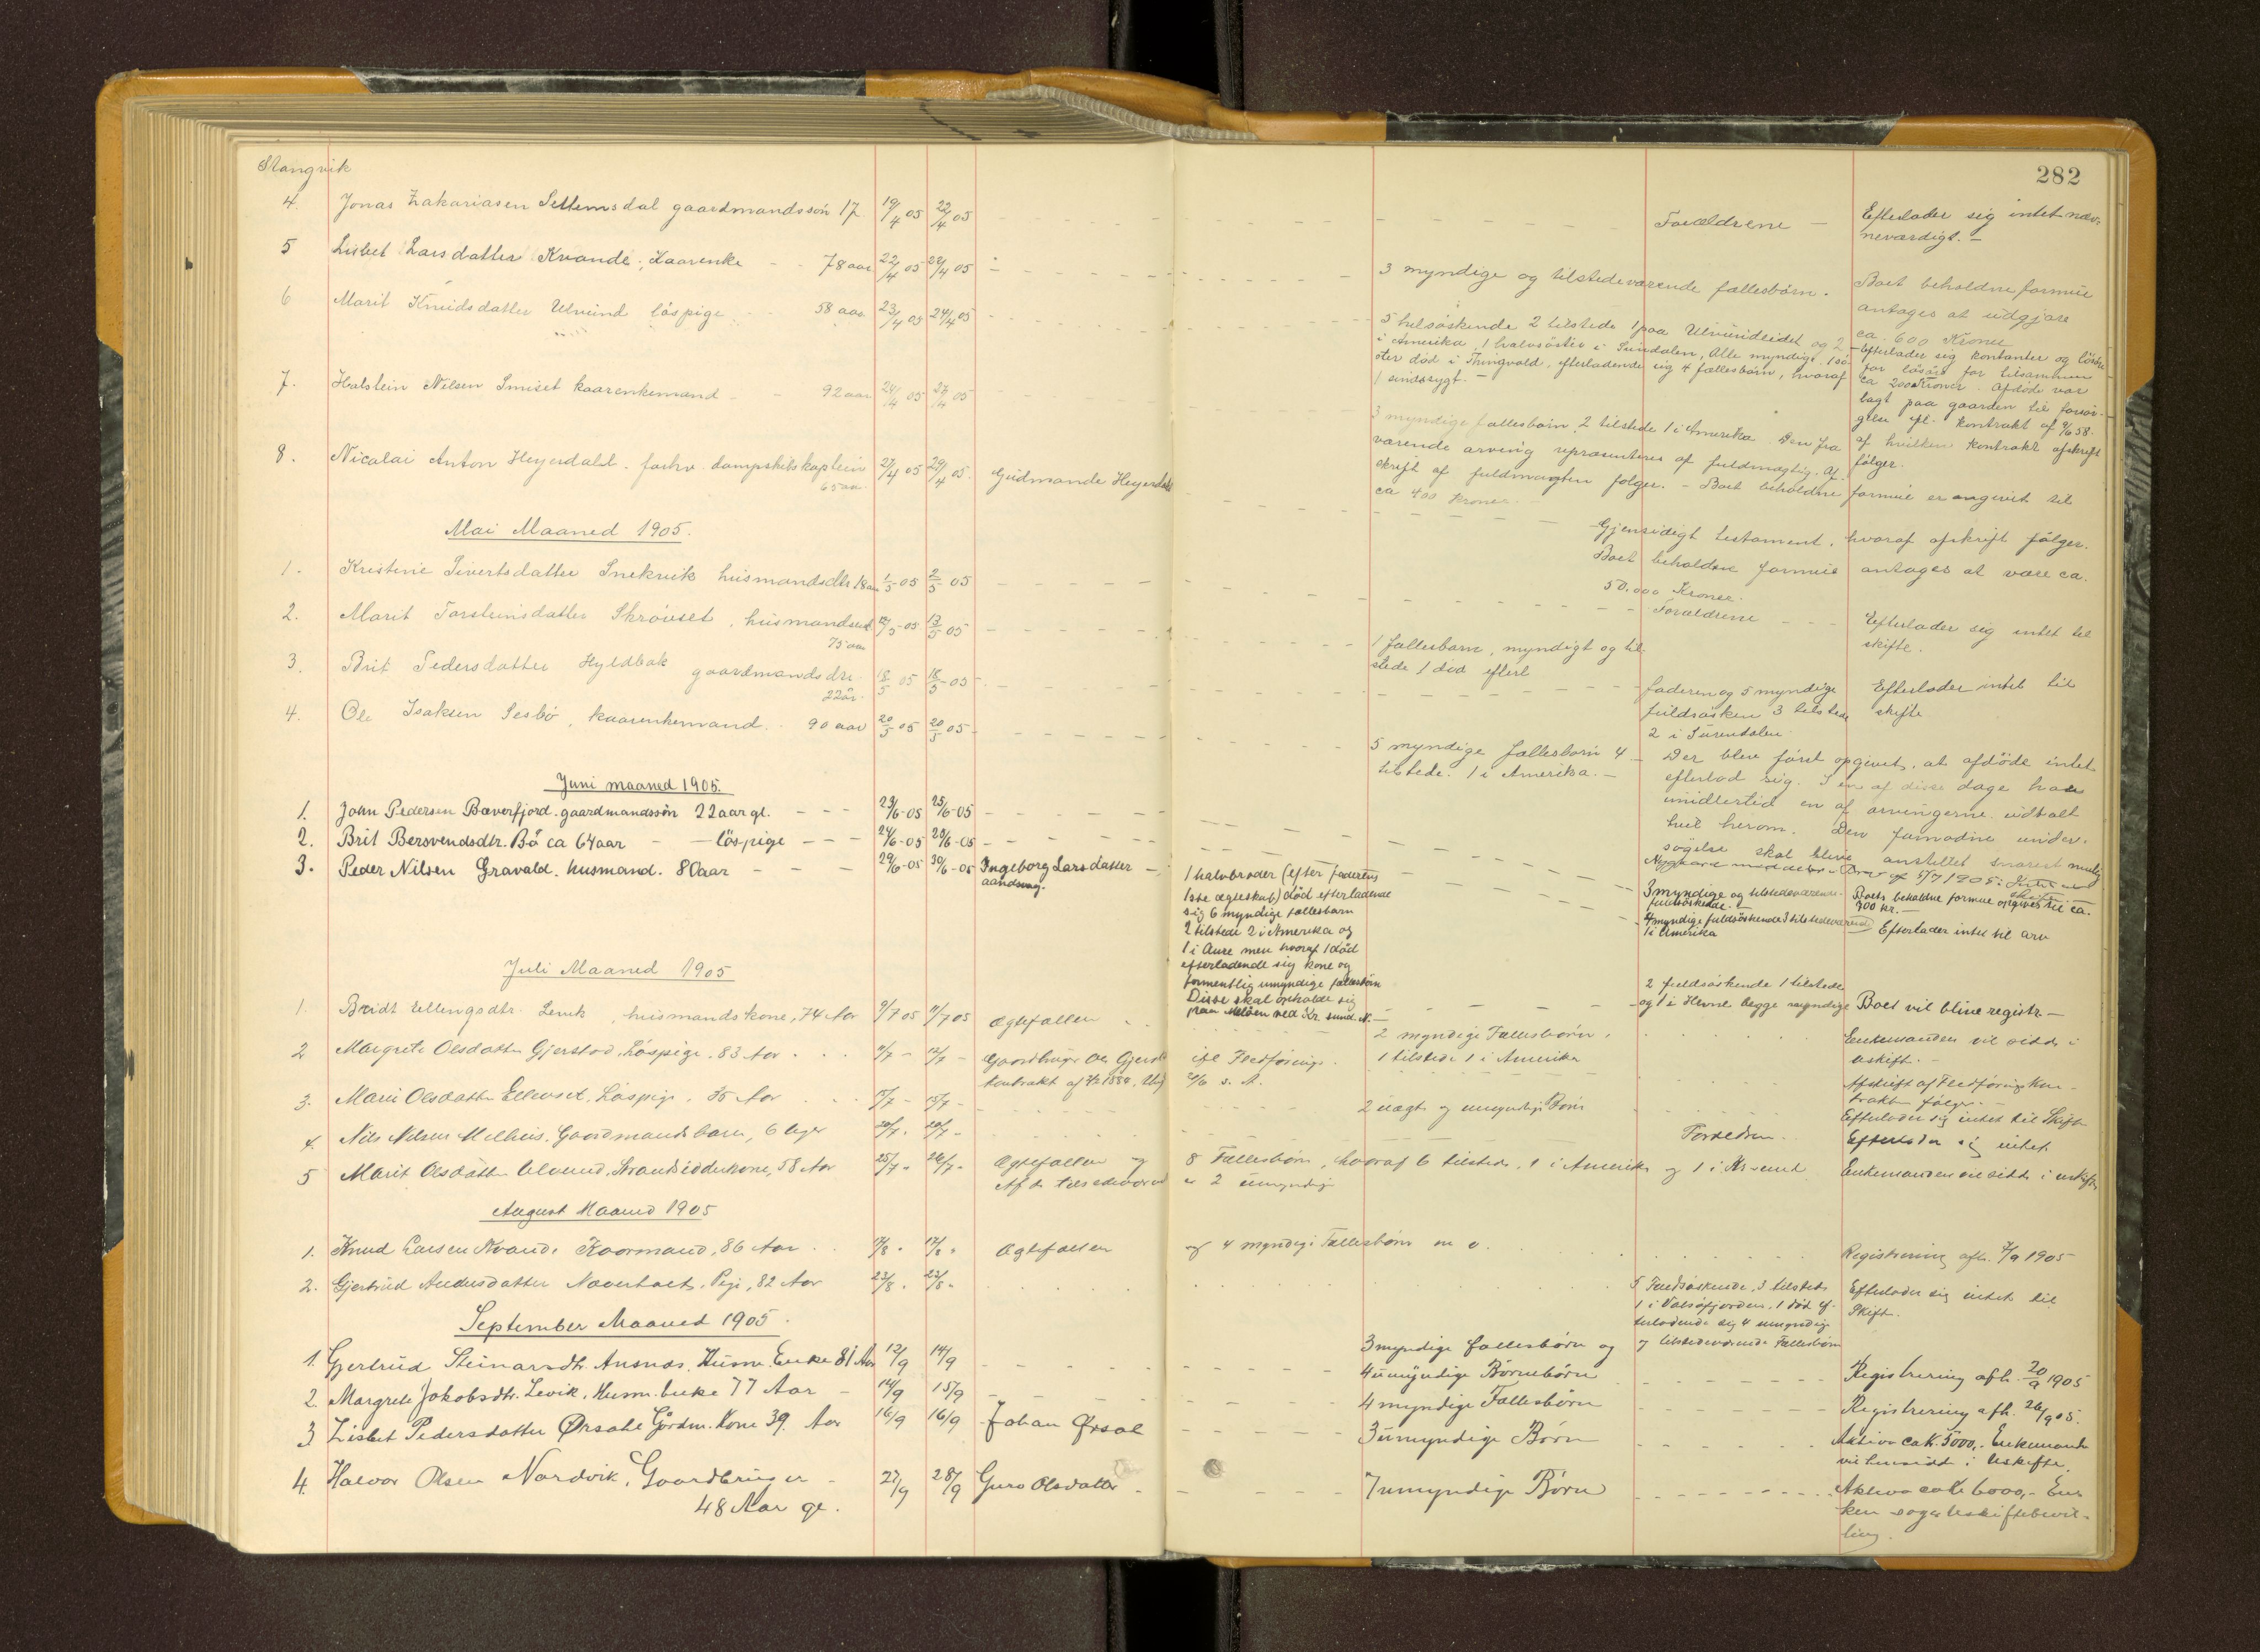 Stangvik
282
4. Jonas Zakariasen Settemsdal gaardmandssön 17 19/4 05 22/4 05 Forældrene — Efterlader sig intet næv-
neværdigt. —
5 Lisbet Larsdatter Kvande, Kaarenke 78 aar 22/4 05 28/4 05 3 myndige og tilstedeværende fællesbörn. Boet beholdne formue
antages at udgjöre
ca. 600 Kroner
6 Marit Knudsdatter Ulvund löspige 58 aar 23/4 05 24/4 05 5 helsöskende 2 tilstede 1 paa Ulvundeidet og 2
i Amerika, 1 halvsöster i Sundalen, Alle myndige. 1 sö-
ster död i Thingvold, efterladende sig 4 fællesbörn, hvoraf
1 sindssygt. —
Efterlader sig kontanter og lösöre
for tilsammen
ca 200 Kroner. Afdöde var
lagt paa gaarden til forsör-
gelse efl. kontrakt af 9/6 58.
af hvilken kontrakt afskrift
fölger.
7. Halstein Nilsen Smiset kaarenkemand 92 aar 24/4 05 27/4 05 3 myndige fællesbörn 2 tilstede 1 i Amerika. Den fra
værende arving representeres af fuldmægtig. Af-
skrift af fuldmagten fölger. – Boet beholdne formue er angivet til
ca 400 Kroner.
8. Nicolai Anton Heyerdahl. forhv. dampskibskaptein 27/4 05 29/4 05. Gudmunda Heyerdahl
65 aar.
Gjensidigt testament, hvoraf afskrift fölger.
Boet beholdne formue antages at være ca.
50.000 Kroner.
Mai Maaned 1905.
1. Kristine Sivertsdatter Snekvik husmandsdtr 18 aar 1/5 05 2/5 05 Forældrene Efterlader sig intet til
skifte.
2. Marit Torsteinsdatter Skrövset, husmandsenk. 12/5 05 13/5 05
75 aar
1 fællesbarn, myndigt og til
stede 1 död efterl
3. Brit Pedersdatter Hyldbak gaardmandsdtr. 18/5 05 18/5 05
22 år.
faderen og 5 myndige
fuldsösken 3 tilstede
2 i Surendalen
Efterlader intet til
skifte
4. Ole Isaksen Sesbö, kaarenkemand. 90 aar 20/5 05 20/5 05 5 myndige fællesbörn 4
tilstede. 1 i Amerika. —
Der blev först opgivet, at afdöde intet
efterlod sig. I en af disse dage har
imidlertid en af arvingerne udtalt
tvil herom. Den fornødne under-
sögelse skal blive anstillet snarest mulig
Juni maaned 1905.
1. John Pedersen Bæverfjord. gaardmandssön 22 aar gl. 23/6-05 25/6-05
2. Brit Bersvendsdtr. Bö ca 64 aar — löspige 24/6-05 28/6-05
3. Peder Nilsen Gravald. husmand. 80 aar 29/6-05 30/6-05 Ingeborg Larsdatter
aandssvag.
1 halvbroder (efter faderens
1ste ægteskab) död efterladende
sig 6 myndige fællesbarn
2 tilstede 2 i Amerika og
1 i Aure men hvoraf 1 död
efterladende sig kone og
formentlig umyndige fællesbörn
Disse skal opholde sig
paa Meløen ved Kr. sund. N.
3 myndige og tilstedeværende
fuldsöskende.
Boets beholdne formue opgives til ca.
300 kr.
4 myndige fuldsöskende 3 tilstedeværende
1 i Amerika
Efterlader intet til arv
Juli Maaned 1905
1. Bridt Ellingsdtr. Levik, husmandskone, 74 Aar 9/7 05 11/7 05 Ægtefællen
2 fuldsöskende 1 tilstede
og 1 i Hevne begge myndige Boet vil blive registr. —
2 Margrete Olsdatter Gjerstad, Löspige. 83 Aar Gaardbruger Ole Gjerst
2 myndige Fællesbörn,
1 tilstede 1 i Amerika
Enkemanden vil sidde i
uskift. —
Afskrift af Flidföringskon-
trakten fölger. —
3. Marie Olsdatter Ellevset, Löspige, 35 Aar 2 uægte og umyndige Börn Efterlader sig intet til Skifte
4. Nils Nilsen Melhus, Gaardmandsbarn, 6 Uger Forældren. Efterlader sig intet
5 Marit Olsdatter Ulvund, Strandsidderkone, 58 Aar 25/7 26/7 Ægtefællen og 8 Fællesbörn, hvoraf 6 tilstede, 1 i Amerika og 1 i Kr-sund Enkemanden vil sidde i uskifte
Af de tilstedeværend er 2 umyndige
August Maaned 1905
1. Knud Larsen Kvande Kaarmand, 86 Aar Ægtefællen og 4 myndige Fællesbörn Registrering afh. 7/9 1905
2. Gjertrud Andersdatter Naverholt, Pige, 82 Aar 23/8 23/8
5 Fuldsöskende, 3 tilstede
1 i Valsöfjorden, 1 död ef-
terladende sig 4 umyndige
og tilstedeværende Fællesbörn
Efterlader sig intet til
Skift.
September Maaned 1905.
1. Gjertrud Steinarsdtr. Ansnæs. Husm. Enke 81 Aar 12/9 14/9 3 myndige fællesbörn og
4 umyndige Börnebörn
Registrering afh. 20/9 1905
2. Margrete Jakobsdtr. Levik, Husm. enke 77 Aar 14/9 15/9 4 myndige Fællesbörn Registrering afh. 26/9 05.
3 Lisbet Pedersdatter Ørsahl Gårdm. Kone 39 Aar 16/9 16/9 Johan Ørsal 3 umyndige Börn Aktiva ca K. 5000,- Enkemand
vil hensidd i Uskifte.
4. Halvor Olsen Nordvik, Gaardbruger 27/9 28/9 Guro Olsdatter 7 umyndige Börn Aktiva ca K 6000,- En-
ken söger Uskiftebevil-
ling.
48 Aar gl.